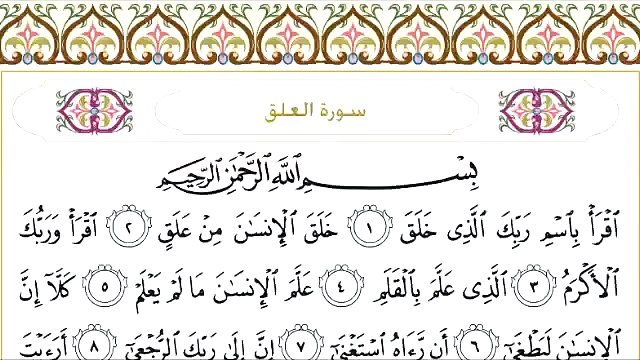 سورة العلق
بِسْمِ اللَّهِ الرَّحْمَٰنِ الرَّحِيمِ
اقْرَأْ بِاسْمِ رَبِّكَ الَّذِي خَلَقَ ١ خَلَقَ الْإِنسَانَ مِنْ عَلَقٍ ٢ اقْرَأْ وَرَبُّكَ
الْأَكْرَمُ ٣ الَّذِي عَلَّمَ بِالْقَلَمِ ٤ عَلَّمَ الْإِنسَانَ مَا لَمْ يَعْلَمْ ٥ كَلَّا إِنَّ
الْإِنسَانَ لَطْغَىٰ ٦ أَن رَّءَاهُ اسْتَغْنَىٰ ٧ إِنَّ إِلَىٰ رَبِّكَ الرُّجْعَىٰ ٨ أَرَءَيْتَ